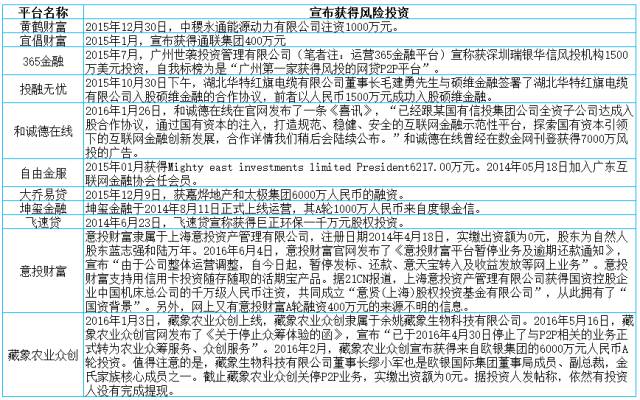 平台名称 宣布获得风险投资
黄鹤财富 2015年12月30日，中稷永通能源动力有限公司注资1000万元。
宜倡财富 2015年1月，宣布获得通联集团400万元
365金融 2015年7月，广州世袭投资管理有限公司（笔者注：运营365金融平台）宣称获深圳瑞银华信风投机构1500
万美元投资，自我标榜为是“广州第一家获得风投的网贷P2P平台”。
投融无忧 2015年10月30日下午，湖北华特红旗电缆有限公司董事长毛建勇先生与硕维金融签署了湖北华特红旗电缆
有限公司入股硕维金融的合作协议，前者以人民币1500万元成功入股硕维金融。
和诚德在线 2016年1月26日，和诚德在线在官网发布了一条《喜讯》，“已经跟某国有信投集团公司全资子公司达成入
股合作协议，通过国有资本的注入，打造规范、稳健、安全的互联网金融示范性平台，探索国有资本引领
下的互联网金融创新发展，合作详情我们稍后会陆续公布。”和诚德在线曾经在数金网刊登获得7000万风投
的广告。
自由金服 2015年01月获得Mighty east investments limited President6217.00万元。2014年05月18日加入广东互
联网金融协会任会员。
大乔易贷 2015年12月9日，获嘉烨地产和太极集团6000万人民币的融资。
坤玺金融 坤玺金融于2014年8月11日正式上线运营，其A轮1000万人民币来自度银金信。
飞速贷 2014年6月23日，飞速贷宣称获得巨正环保一千万元股权投资。
意投财富 意投财富隶属于上海意投资产管理有限公司，注册日期2014年4月18日，实缴出资额为0元，股东为自然人
股东蓝志强和陆万年。2016年6月4日，意投财富官网发布了《意投财富平台暂停业务及逾期还款通知》，
宣布“由于公司整体运营调整，自今日起，暂停发标、还款、意天宝转入及收益发放等网上业务”。意投
财富支持用信用卡投资随存随取的活期宝产品。据21CN报道，上海意投资产管理有限公司获得国资控股企
业中国机床总公司的千万级人民币注资，共同成立“意贤(上海)股权投资基金有限公司”，从此拥有了“
国资背景”。另外，网上又有意投财富A轮融资400万元的来源不明的信息。
藏象农业众创 2016年1月3日，藏象农业众创上线，藏象农业众创隶属于余姚藏象生物科技有限公司。2016年5月16日，藏象
农业众创官网发布了《关于停止众筹体验的函》，宣布“已于2016年4月30日停止了与P2P相关的业务正
式转为农业众筹服务、众创服务”。2016年2月，藏象农业众创宣布获得来自欧银集团的6000万元人民币A
轮投资。值得注意的是，藏象生物科技有限公司董事长缪小军也是欧银国际集团董事局成员、副总裁，金
氏家族核心成员之一。截止藏象农业众创关停P2P业务，实缴出资额为0元。据投资人发帖称，依然有投资
人没有完成提现。